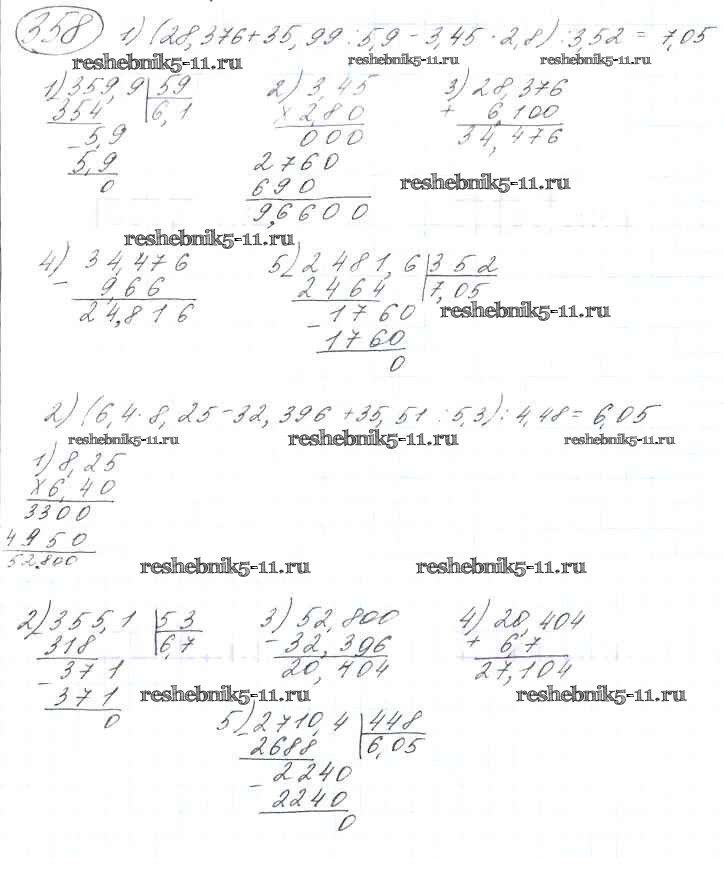 358 1) (28,376+35,99:5,9-3,45·2,8):3,52=7,05
reshebnik5-11.ru reshebnik5-11.ru reshebnik5-11.ru
1) 359,9 59 2) 3,45 3) 28,376
354 6,1 × 2,80 + 6,100
- 5,9 000 34,476
5,9 2760
0 690 reshebnik5-11.ru
9,6600
reshebnik5-11.ru
4) 34,476 5) 2481,6 352
- 9,66 2464 7,05
24,816 - 1760 reshebnik5-11.ru
1760
0
2) (6,4·8,25-32,396+35,51:5,3):4,48=6,05
reshebnik5-11.ru reshebnik5-11.ru reshebnik5-11.ru
1) 8,25
× 6,40
3300
4950
52,800 reshebnik5-11.ru reshebnik5-11.ru
2) 355,1 53 3) 52,800 4) 20,404
318 6,7 - 32,396 + 6,7
- 371 20,404 27,104
371 reshebnik5-11.ru reshebnik5-11.ru
0
5) 2710,4 448
- 2688 6,05
- 2240
2240
0